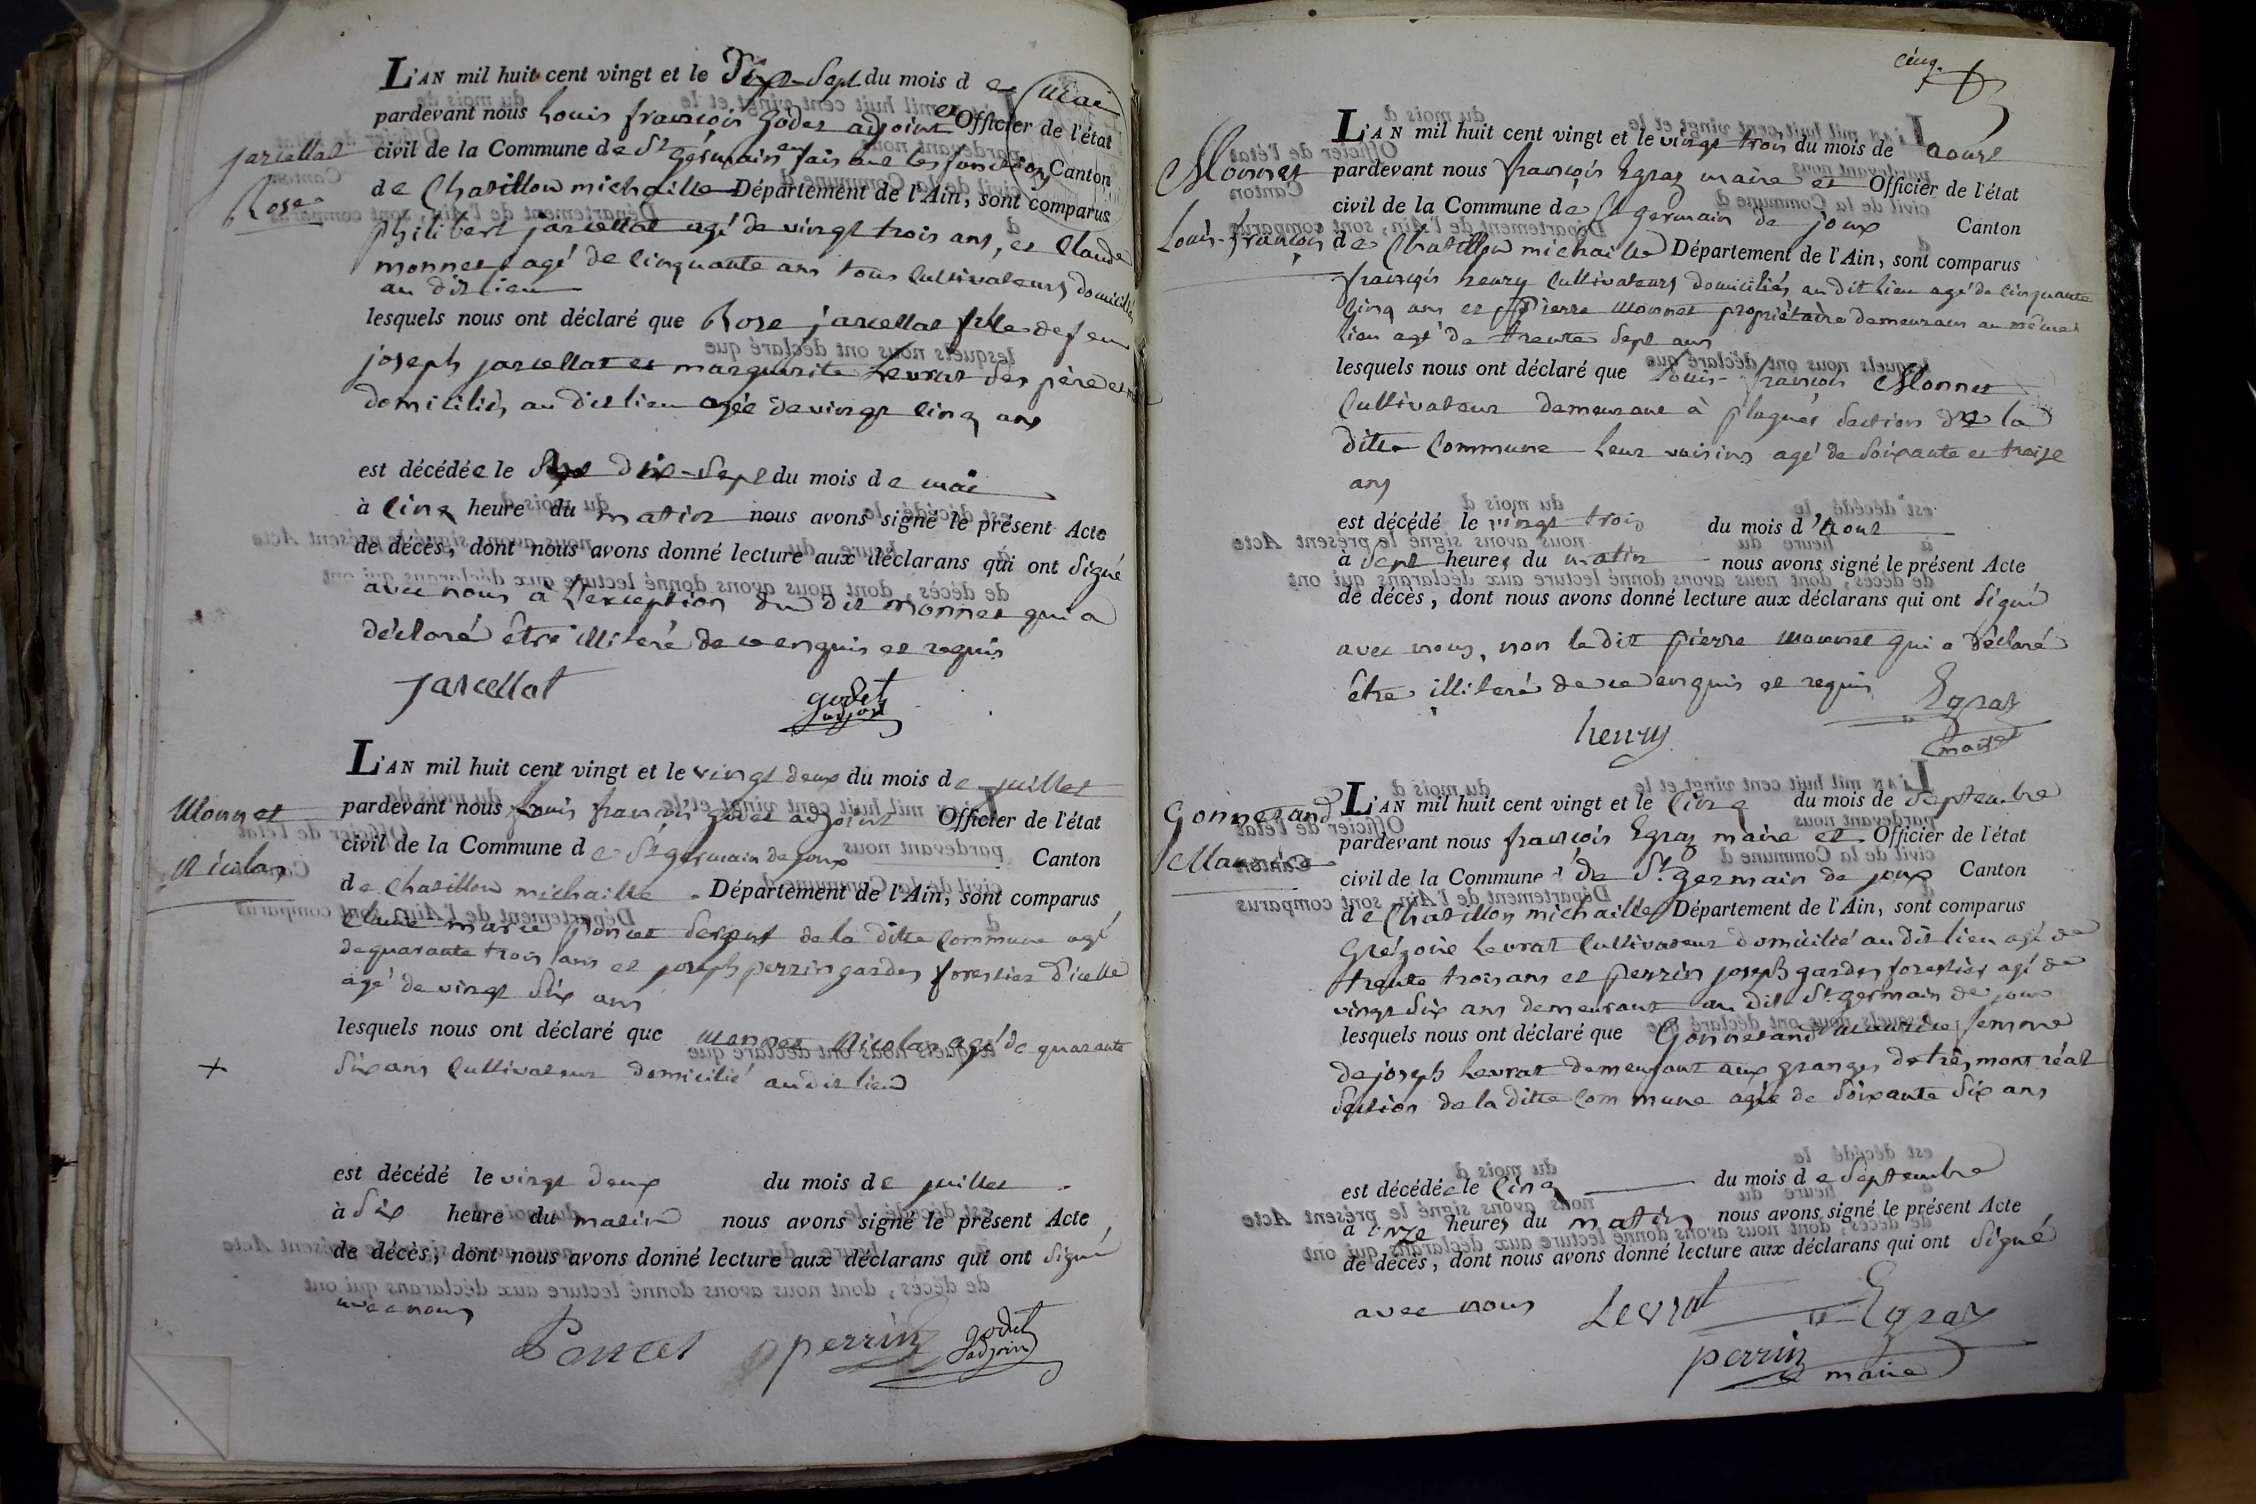 Jarcellat
Rose
L'AN mil huit cent vingt et le Dix-Sept du mois de mai
pardevant nous Louis françois godet adjoint et Officier de l'état
civil de la Commune de St germain en faisant les fonctions Canton
de Chatillon michaille Département de l'Ain, sont comparus
philibert jarcellat agé de vingt trois ans, et Claude
monnet agé de Cinquante ans tous Cultivateurs domiciliés
au dit lieu
lesquels nous ont déclaré que Rose jarcellat fille de feu
joseph jarcellat et marguerite Levrat ses père et
domiciliés au dit lieu agée de vingt Cinq ans
est décédée le dix-Sept du mois de mai
à Cinq heure du matin nous avons signé le présent Acte
de décès, dont nous avons donné lecture aux déclarans qui ont Signé
avec nous à L'exception du dit Monnet qui a
déclaré être illiteré de ce enquis et requis
jarcellat godet
adjoint
Monnet
Nicolas
L'AN mil huit cent vingt et le vingt deux du mois de juillet
pardevant nous Louis françois godet adjoint Officier de l'état
civil de la Commune de St germain de joux Canton
de Chatillon michaille Département de l'Ain, sont comparus
Claude marie poncet Sergent de la ditte Commune agé
de quarante trois ans et joseph perrin gardes forestier d'icelle
agé de vingt Six ans
lesquels nous ont déclaré que Monnet Nicolas agé de quarante
Six ans Cultivateur domicilié au dit lieu
est décédé le vingt deux du mois de juillet
à Six heure du matin nous avons signé le présent Acte
de décès, dont nous avons donné lecture aux déclarans qui ont Signé
avec nous
Poncet perrin godet
adjoint
cinq.
Monnet
Louis-françois
L'AN mil huit cent vingt et le vingt trois du mois de aout
pardevant nous françois Egraz maire et Officier de l'état
civil de la Commune de St germain de joux Canton
de Chatillon michaille Département de l'Ain, sont comparus
françois henry Cultivateurs domiciliés au dit lieu agé de Cinquante
Cinq ans et Pierre Monnet propriétaire demeurant au même
lieu agé de trente Sept ans
lesquels nous ont déclaré que Louis-françois Monnet
Cultivateur demeurant à plagnes Section de la
ditte Commune leur voisins agé de Soixante et treize
ans
est décédé le vingt trois du mois d'aout
à Sept heures du matin nous avons signé le présent Acte
de décès, dont nous avons donné lecture aux déclarans qui ont Signé
avec nous, non le dit pierre Monnet qui a déclaré
être illiteré de ce enquis et requis
henry Egraz
maire
Gonnetand
Maurice
L'AN mil huit cent vingt et le Cinq du mois de Septembre
pardevant nous françois Egraz maire et Officier de l'état
civil de la Commune de St germain de joux Canton
de Chatillon michaille Département de l'Ain, sont comparus
Grégoire Levrat Cultivateur domicilié au dit lieu agé de
trente trois ans et perrin joseph gardes forestier agé de
vingt Six ans demeurant au dit St germain de joux
lesquels nous ont déclaré que Gonnetand Maurice femme
de joseph Levrat demeurant aux granges de trèsmont réat
Section de la ditte Commune agée de Soixante Six ans
est décédée le Cinq du mois de Septembre
à onze heures du matin nous avons signé le présent Acte
de décès, dont nous avons donné lecture aux déclarans qui ont Signé
avec nous Levrat Egraz
perrin maire